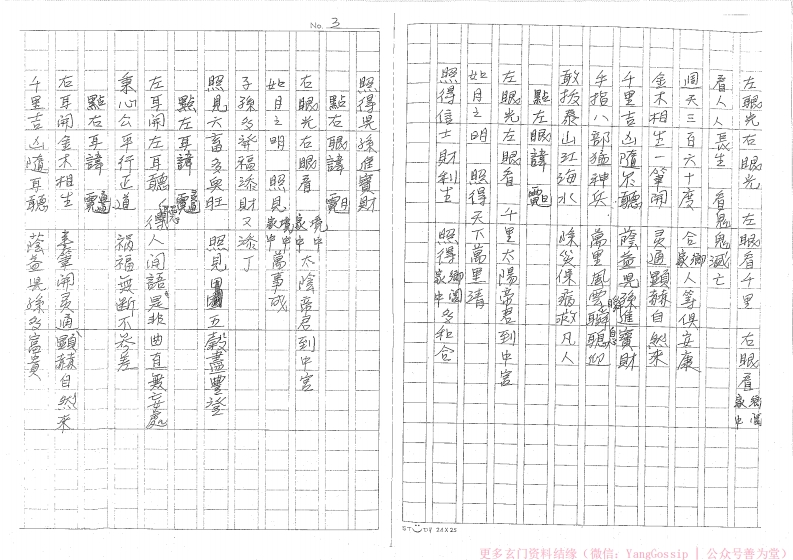 左眼光右眼光　左眼看千里　右眼看家中鄉閭
看人人長生　看鬼鬼滅亡
周天三百六十度　合家鄉人等俱安康
金木相生一筆開　灵通顯赫自然來
千里吉凶隨尔聽　蔭益兒孫進寶財
手指八部猛神兵　萬里風雲聽
敢拔泰山江海水　除災保病救凡人
點左眼諱
左眼光左眼看　千里太陽帝君到中宮
如日之明　照得天下萬里清
照得信士財利生　照得家中鄉閭多和合
No. 3
照得兒孫進寶財
點右眼諱
右眼光右眼看家中境中　太陰帝君到中宮
如月之明　照見家中境中萬事成
子孫多發福添財又添丁
照見六畜多興旺　照見田園五穀盡豐登
點左耳諱
左耳開左耳聽　得人間語是非曲直無妄處
秉心公平行正道　禍福無斷不参差
點右耳諱
右耳開金木相生　筆開灵通顯赫自然來
千里吉凶隨耳聽　蔭益兒孫多富貴
STUDY 24X25
更多玄门资料结缘（微信：YangGossip | 公众号善为堂）